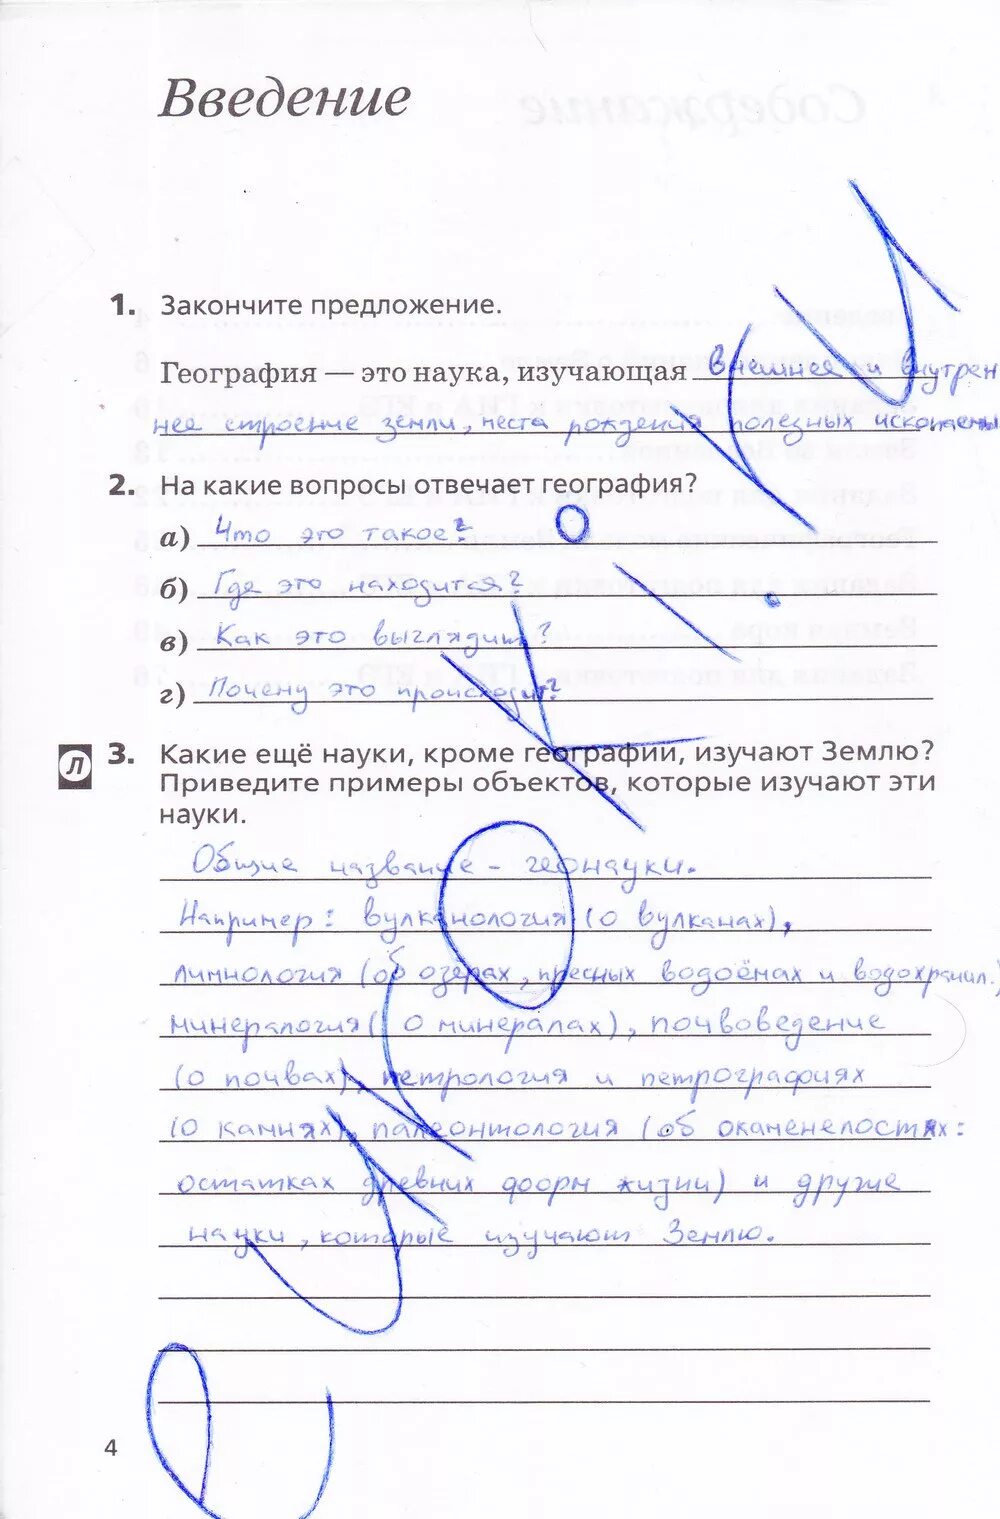 Введение
1. Закончите предложение.
География — это наука, изучающая внешнее и внутрен
нее строение земли, места рождения полезных ископаемы
2. На какие вопросы отвечает география?
а) Что это такое?
б) Где это находится?
в) Как это выглядит?
г) Почему это происходит?
Л 3. Какие ещё науки, кроме географии, изучают Землю?
Приведите примеры объектов, которые изучают эти
науки.
Общие название - геонауки.
Например: вулканология (о вулканах),
лимнология (об озерах, пресных водоёмах и водохранил.)
минералогия (о минералах), почвоведение
(о почвах), петрология и петрографиях
(о камнях), палеонтология (об окаменелостях:
остатках древних форм жизни) и другие
науки, которые изучают Землю.
4